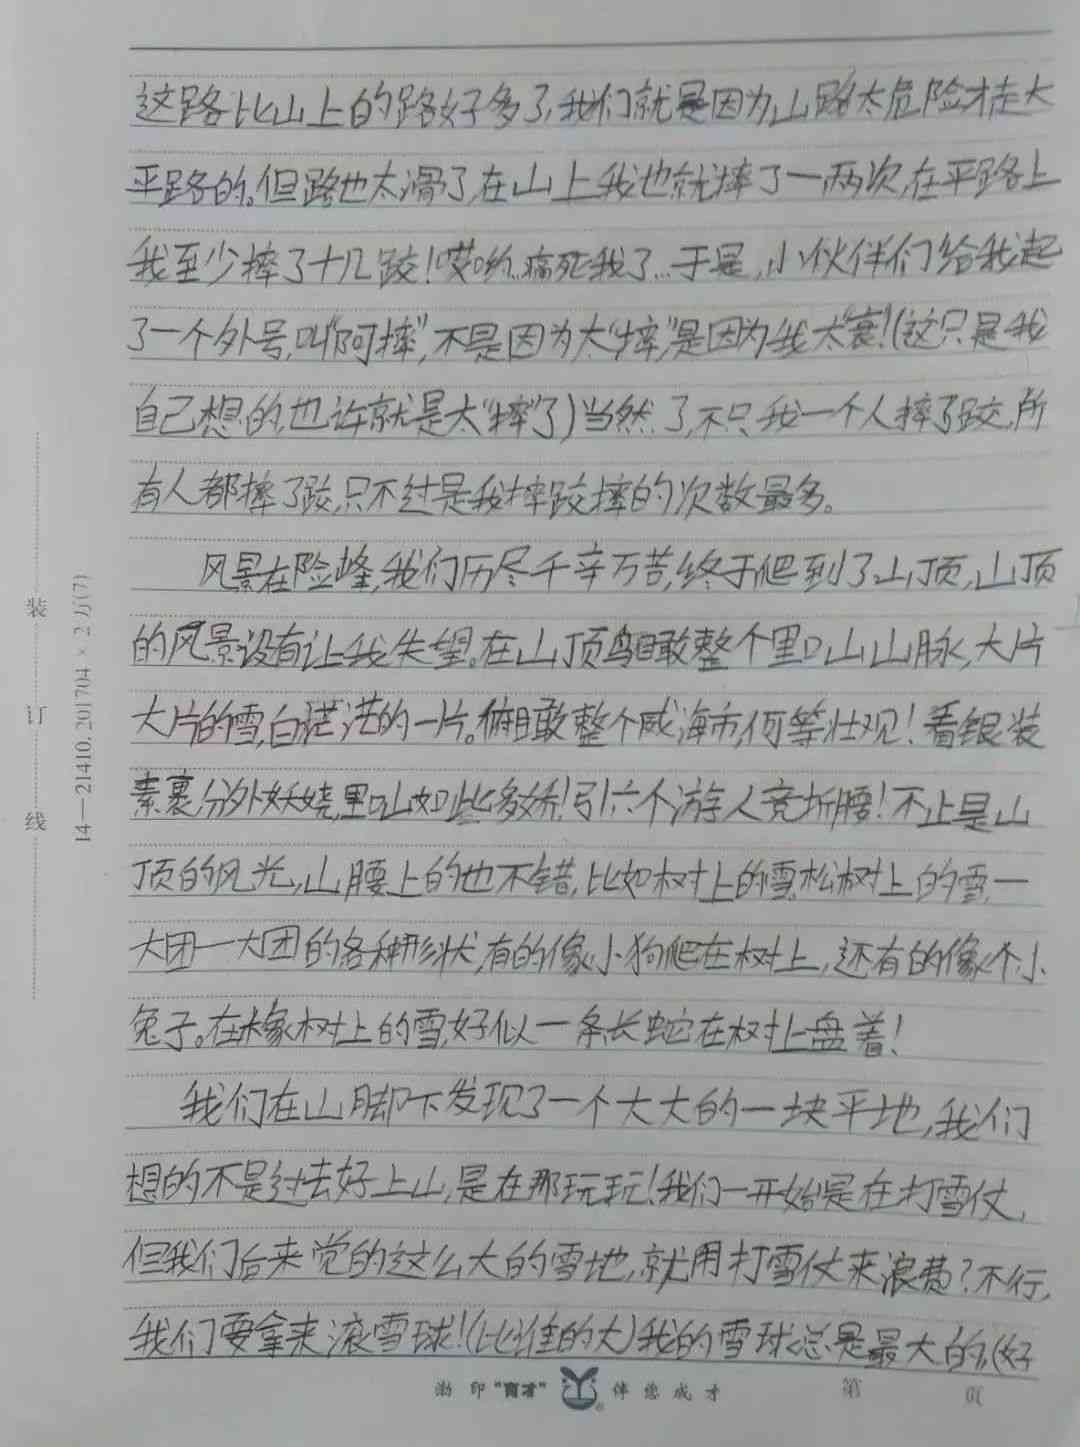 这路比山上的路好多了,我们就是因为山路太危险才走大
平路的。但路也太滑了,在山上我也就摔了一两次,在平路上
我至少摔了十几跤!哎哟,痛死我了…于是,小伙伴们给我起
了一个外号,叫"阿摔",不是因为太"摔",是因为我太"衰"!(这只是我
自己想的,也许就是太"摔"了)当然了,不只我一个人摔了跤,所
有人都摔了跤,只不过是我摔跤摔的次数最多。
风景在险峰,我们历尽千辛万苦,终于爬到了山顶,山顶
的风景没有让我失望。在山顶鸟瞰整个里口山山脉,大片
大片的雪,白茫茫的一片。俯瞰整个威海市,何等壮观!看银装
素裹,分外妖娆,里口山如此多娇!引六个游人竞折腰!不止是山
顶的风光,山腰上的也不错,比如树上的雪,松树上的雪,一
大团一大团的各种形状,有的像小狗爬在树上,还有的像个小
兔子。在橡树上的雪,好似一条长蛇在树上盘着!
我们在山脚下发现了一个大大的一块平地,我们
想的不是过去好上山,是在那玩玩!我们一开始是在打雪仗,
但我们后来觉的这么大的雪地,就用打雪仗来浪费?不行,
我们要拿来滚雪球!(比谁的大)我的雪球总是最大的,(好
渤印"育才" 伴您成才 第 页
装
订
线
14—21410.201704×2万(7)